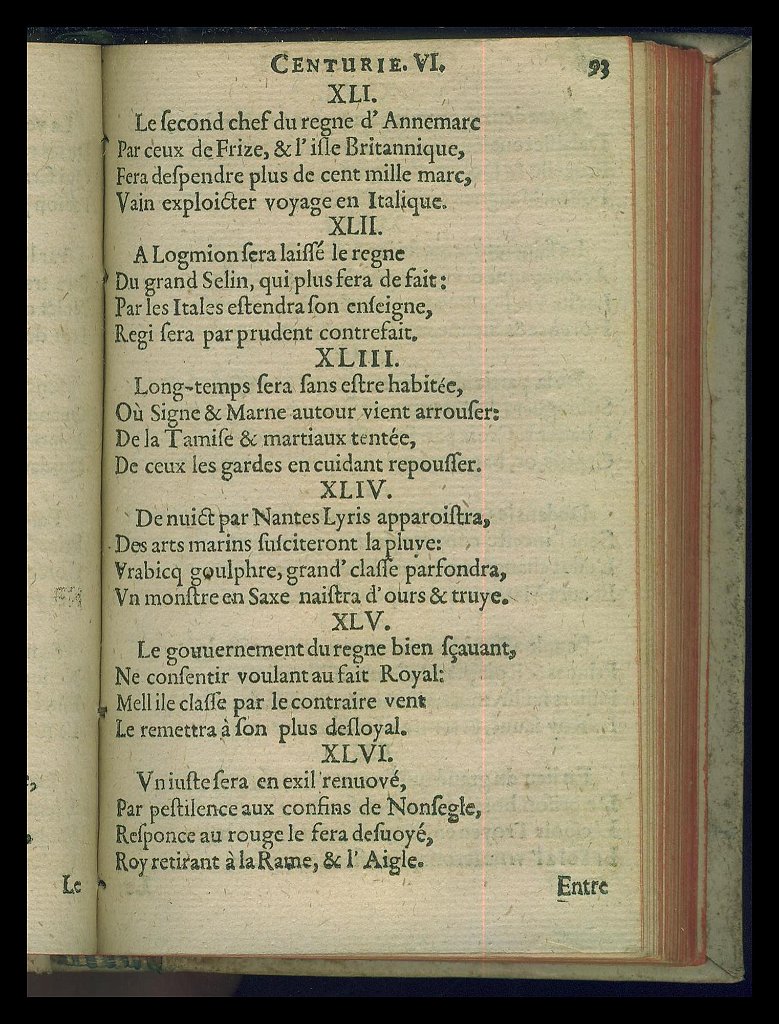 CENTURIE. VI. 93
XLI.
Le ſecond chef du regne d' Annemarc
Par ceux de Frize, & l' iſle Britannique,
Fera deſpendre plus de cent mille marc,
Vain exploicter voyage en Italique.
XLII.
A Logmion ſera laiſſé le regne
Du grand Selin, qui plus fera de fait:
Par les Itales eſtendra ſon enſeigne,
Regi ſera par prudent contrefait.
XLIII.
Long-temps ſera ſans eſtre habitée,
Où Signe & Marne autour vient arrouſer:
De la Tamiſe & martiaux tentée,
De ceux les gardes en cuidant repouſſer.
XLIV.
De nuict par Nantes Lyris apparoiſtra,
Des arts marins ſuſciteront la pluye:
Vrabicq goulphre, grand' claſſe parfondra,
Vn monſtre en Saxe naiſtra d' ours & truye.
XLV.
Le gouuernement du regne bien ſçauant,
Ne conſentir voulant au fait Royal:
Mellile claſſe par le contraire vent
Le remettra à ſon plus deſloyal.
XLVI.
Vn iuſte ſera en exil renuové,
Par peſtilence aux confins de Nonſegle,
Reſponce au rouge le fera deſuoyé,
Roy retirant à la Rame, & l' Aigle.
Le
Entre